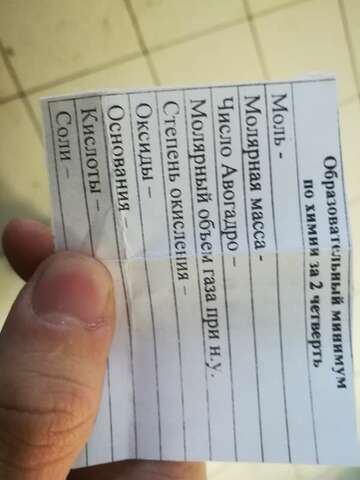 Образовательный минимум
по химии за 2 четверть
Моль -
Молярная масса -
Число Авогадро –
Молярный объем газа при н.у.
Степень окисления –
Оксиды –
Основания –
Кислоты –
Соли –